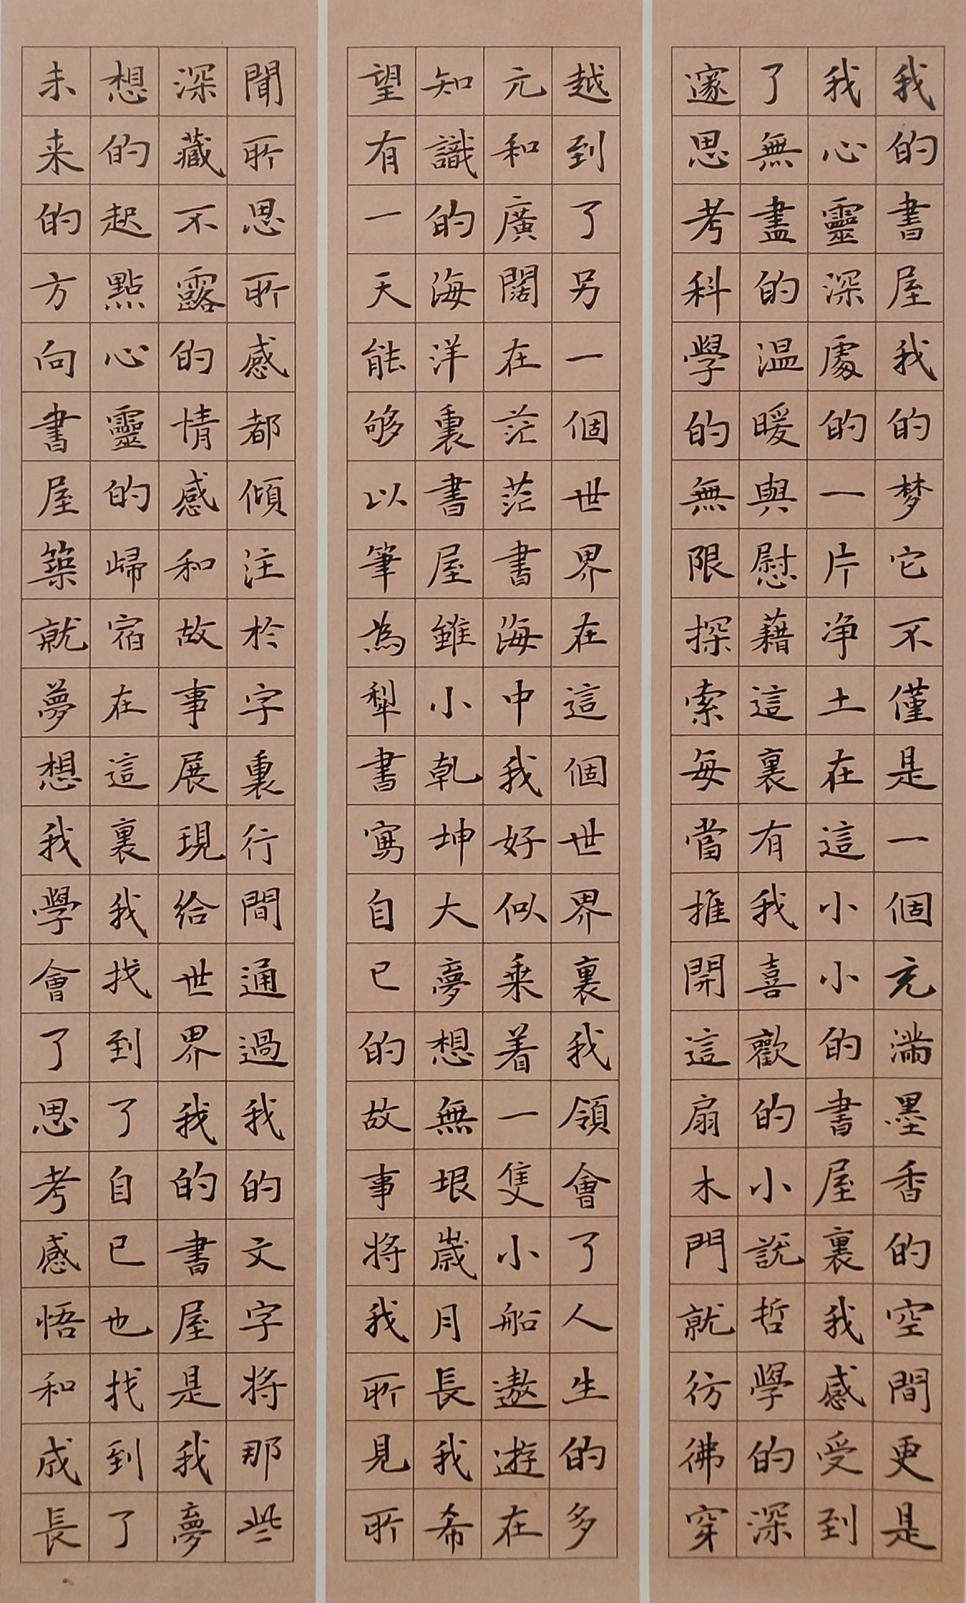 我的書屋我的梦它不僅是一個充满墨香的空間更是
我心靈深處的一片净土在這小小的書屋裏我感受到
了無盡的温暖與慰藉這裏有我喜歡的小説哲學的深
邃思考科學的無限探索每當推開這扇木門就彷彿穿
越到了另一個世界在這個世界裏我領會了人生的多
元和廣闊在茫茫書海中我好似乘着一隻小船遨遊在
知識的海洋裏書屋雖小乾坤大夢想無垠歲月長我希
望有一天能够以筆為犁書寫自已的故事將我所見所
聞所思所感都傾注於字裏行間通過我的文字將那些
深藏不露的情感和故事展現給世界我的書屋是我夢
想的起點心靈的歸宿在這裏我找到了自已也找到了
未来的方向書屋築就夢想我學會了思考感悟和成長